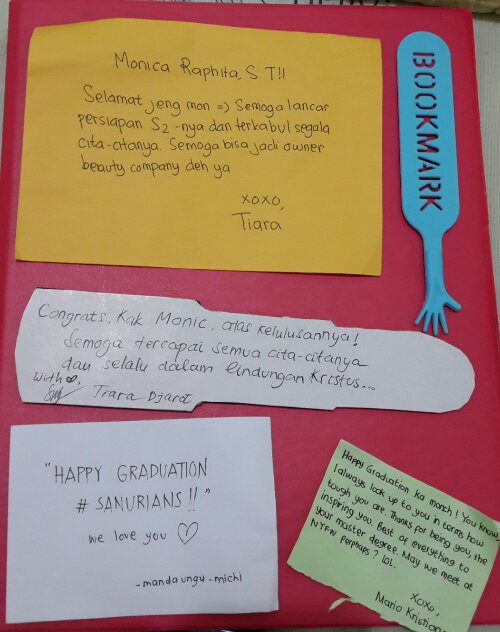 Monica Raphita, S.T!!
Selamat jeng mon =) Semoga lancar
persiapan S2-nya dan terkabul segala
cita-citanya. Semoga bisa jadi owner
beauty company deh ya
xoxo,
Tiara
BOOKMARK
Congrats, Kak Monic, atas kelulusannya!
Semoga tercapai semua cita-citanya
dan selalu dalam lindungan Kristus...
With ∞,
Tiara Djarot
"HAPPY GRADUATION
# SANURIANS!!"
we love you ♡
-manda ungu-michi
Happy Graduation ka monch! You know,
I always look up to you in terms how
tough you are. Thanks for being you, the
inspiring you. Best of everything to
your master degree. May we meet at
NYFW perphaps? LOL.
xoxo,
Mario Kristiono